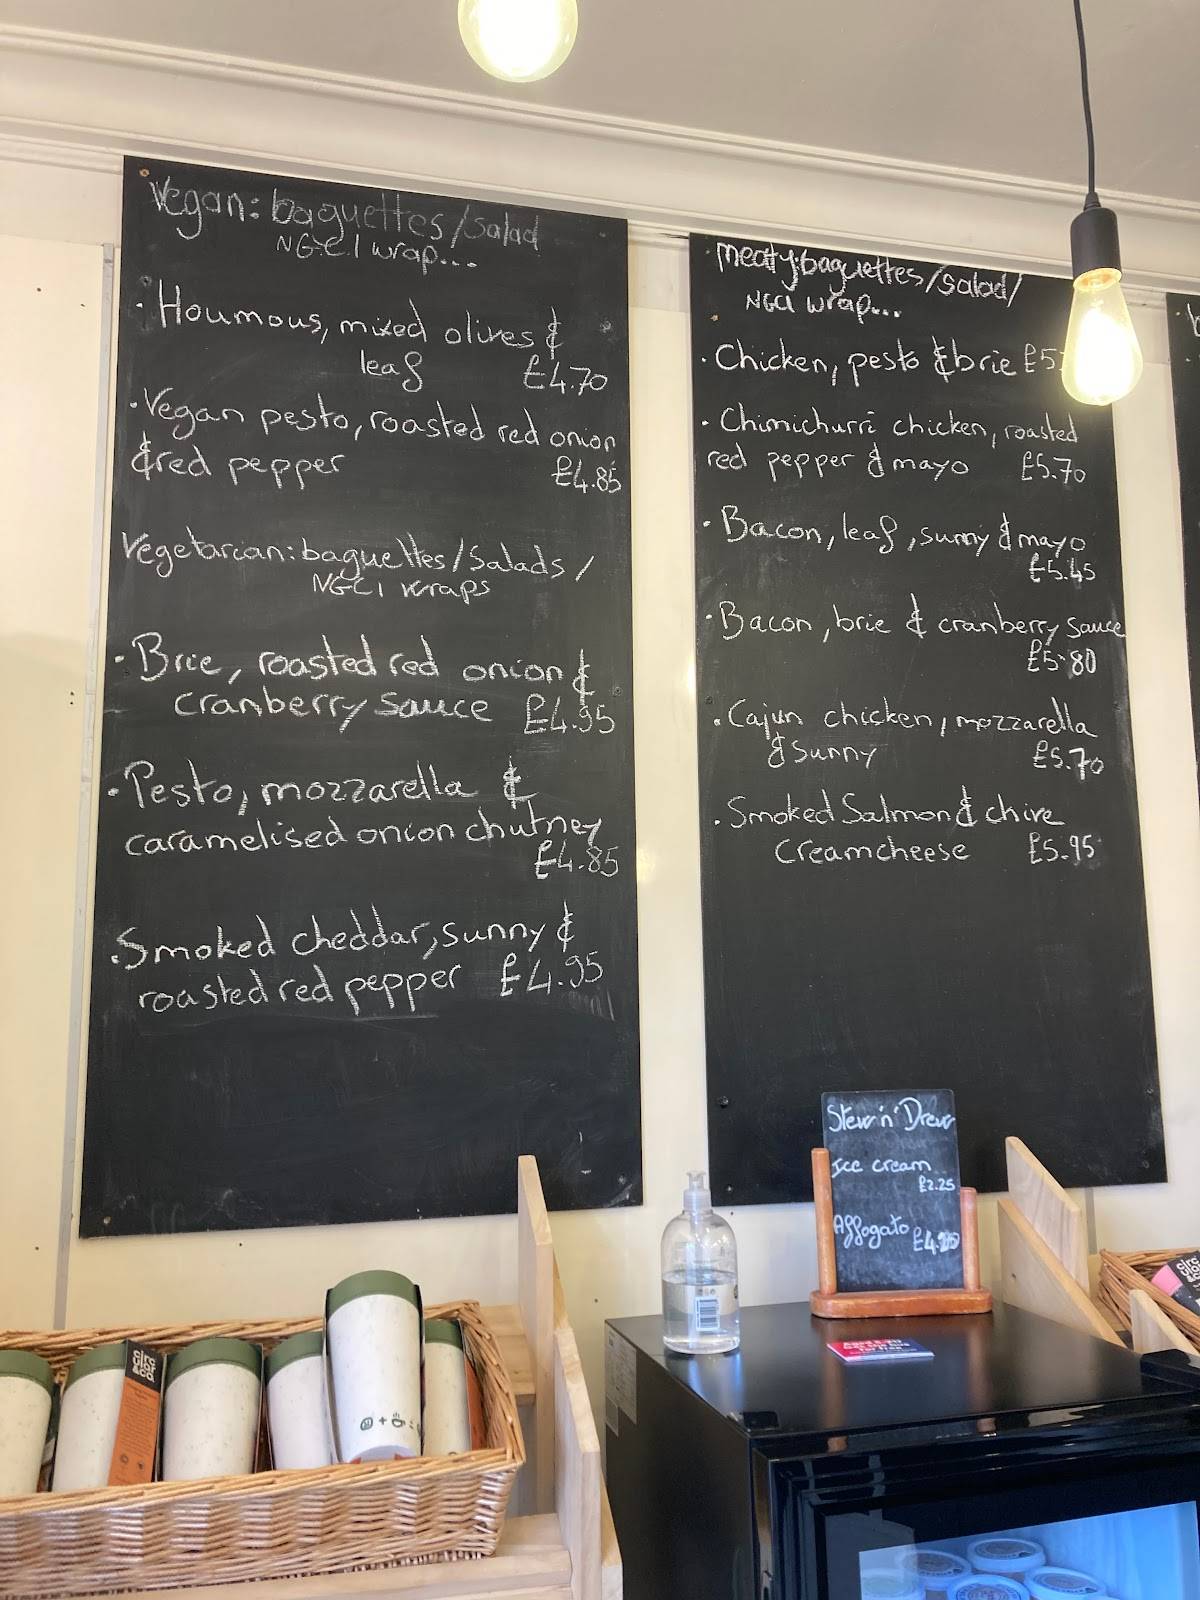 Vegan: baguettes/salad
NGCI wrap...
· Houmous, mixed olives &
leaf £4.70
· Vegan pesto, roasted red onion
& red pepper £4.85
Vegetarian: baguettes/Salads/
NGCI wraps
· Brie, roasted red onion &
cranberry sauce £4.95
· Pesto, mozzarella &
caramelised onion chutney
£4.85
· Smoked cheddar, sunny &
roasted red pepper £4.95
meaty: baguettes/salad/
NGCI wrap...
· Chicken, pesto & brie
· Chimichurri chicken, roasted
red pepper & mayo £5.70
· Bacon, leaf, sunny & mayo
£5.45
· Bacon, brie & cranberry sauce
£5.80
· Cajun chicken, mozzarella
& sunny £5.70
· Smoked Salmon & chive
creamcheese £5.95
Stew 'n' Drew
Ice cream
£2.25
Affogato
circular
&co.